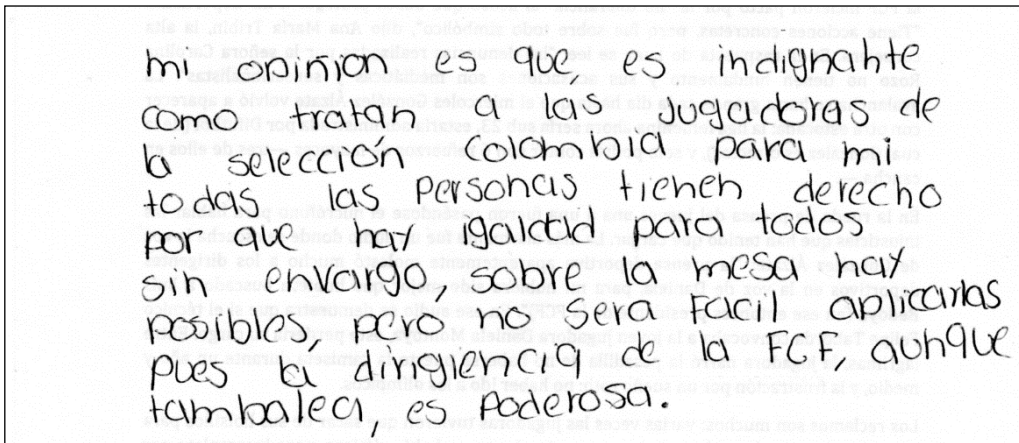 mi opinion es que es indignante
como tratan a las jugadoras de
la selección Colombia para mi
todas las personas tienen derecho
mr que hay igaldad para todos
sih envargo, sobre la mesa, hay
posibles, pero no sera facil aplicarlas
pues la dirigiencia de la FCF, aunque
tambalea, es Poderosa.